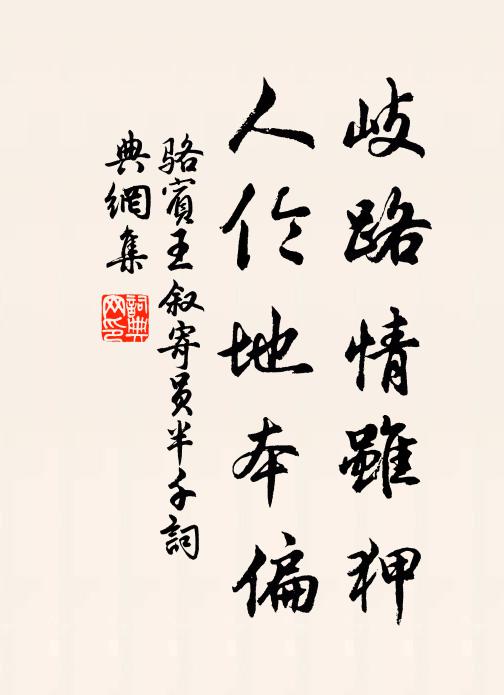 岐路情雖狎
人伦地本偏
骆賓王叙寄员半千詞
典網集
詞典
网印